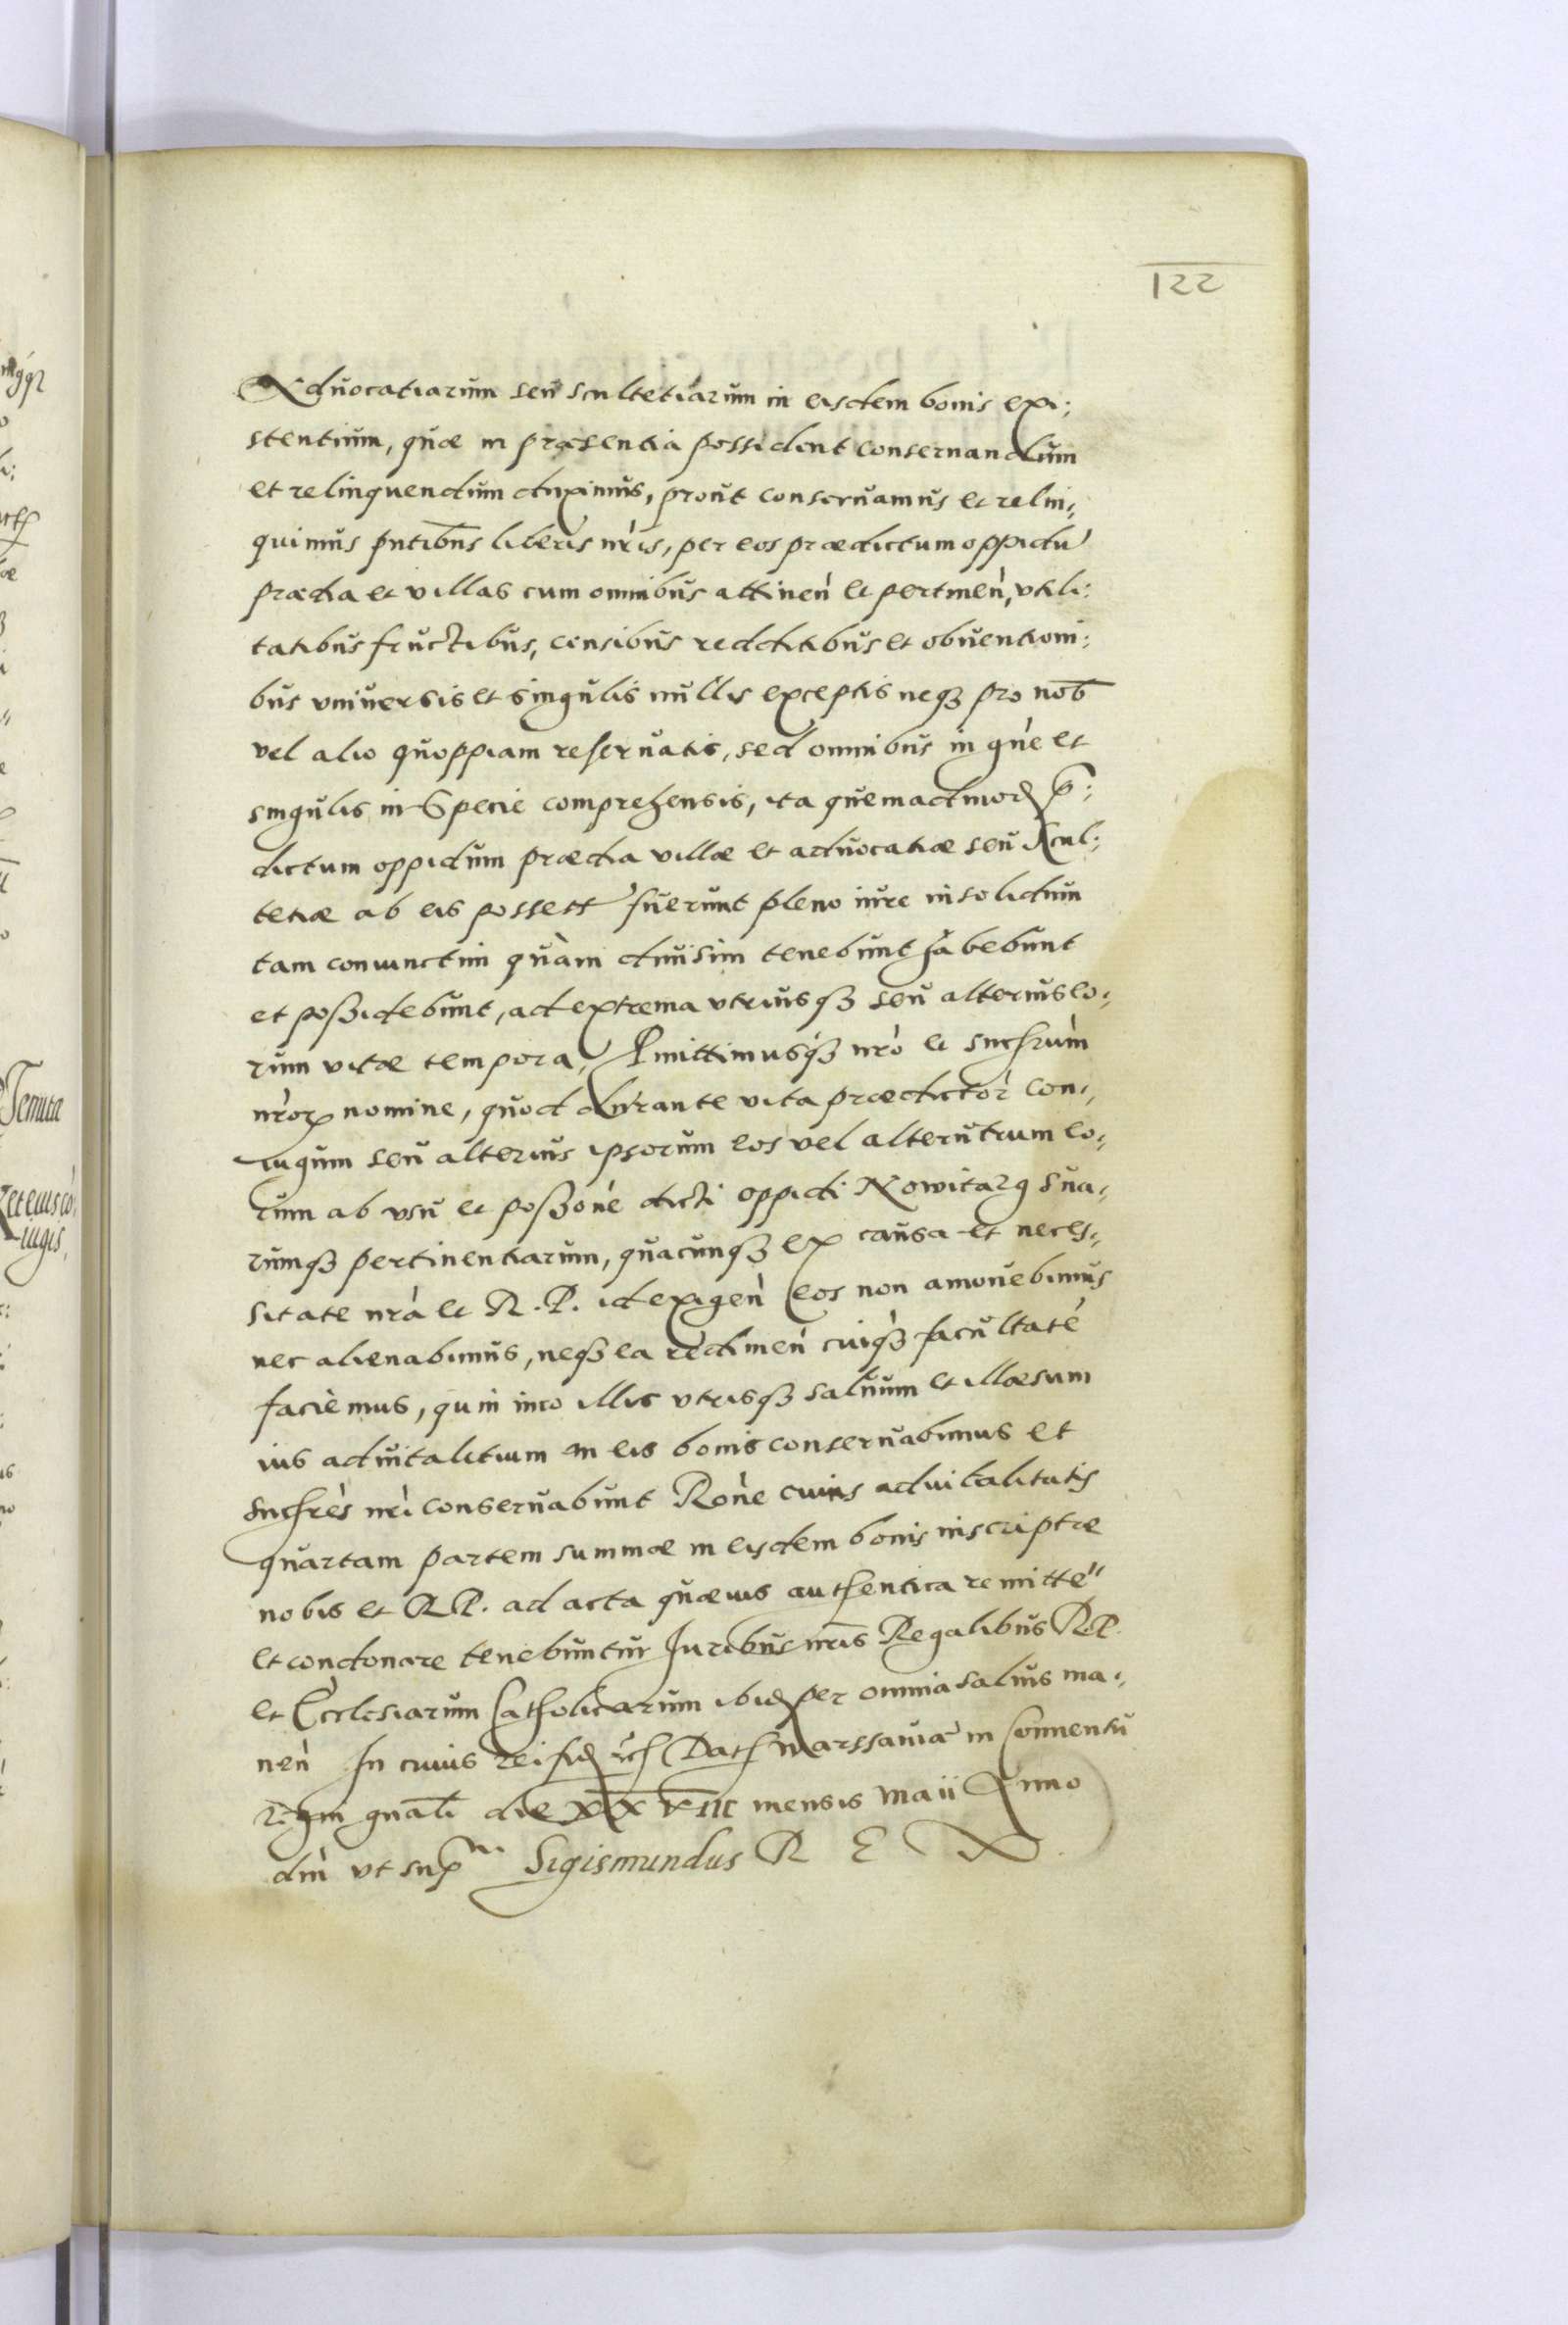 122
Aduocatiarum seu scultetiarum in eisdem bonis exi:
stentium, quæ in præsentia possident conseruandum
et relinquendum duximus, prout conseruamus et relin:
quimus pntibus literis nris, per eos prædictum oppidu
prædia et villas cum omnibus attinen et pertinen, vtili:
tatibus fructibus, censibus redditibus et obuentioni:
bus vniuersis et singulis nullis exceptis neqз pro nob
vel alio quoppiam reseruatis, sed omnibus in gne et
singulis in Specie comprehensis, ita quemadmod p:
dictum oppidum prædia villæ et aduocatiæ seu scul:
tetiæ ab eis possess fuerunt pleno iure insolidum
tam coniunctim quàm diuisim tenebunt habebunt
et possidebunt, ad extrema vtriusqз seu alterius eo:
rum vitæ tempora, Pmittimusqз nro et succrum
nror nomine, quod durante vita prædictor con:
iugum seu alterius ipsorum eos vel alterutrum eo:
rum ab vsu et possone dicti oppidi Nowitarg sua:
rumqз pertinentiarum, quacunqз ex causa et neces:
sitate nra et R. P. id exigen eos non amouebimus
nec alienabimus, neqз ea redimen cuiqз facultate
faciemus, quin imo illis vtrisqз saluum et illæsum
ius aduitalitium in eis bonis conseruabimus et
succres nri conseruabunt Rone cuius aduitalitatis
quartam partem summæ in eisdem bonis inscriptæ
nobis et R.P. ad acta quæuis authentica remitte
et condonare tenebuntur Iuribus nris Regalibus R.P.
et Ecclesiarum Catholicarum ibid per omnia saluis ma:
nen In cuius rei fid etc Dat Warssauiæ in Conuentu
regni gnali die XXVIII mensis Maii Anno
dni vt sup Sigismundus R E X.
ggr
Tenuta
et eius co:
iugis,